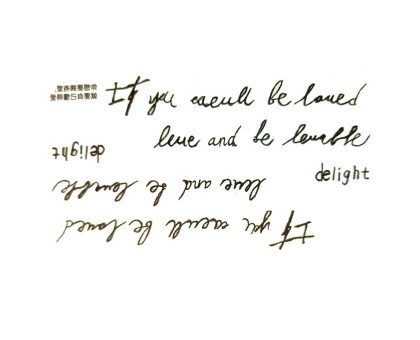 If you caeull be loued
leue and be leuable
delight
delight
leue and be leuable
If you caeull be loued